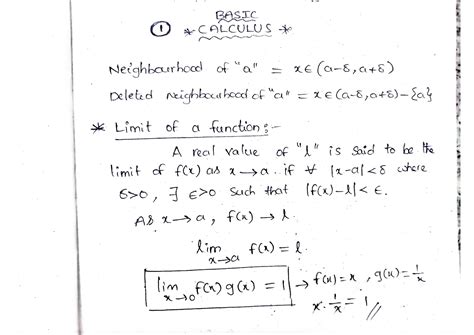 BASIC
① * CALCULUS *
Neighbourhood of "a" = x ∈ (a-δ, a+δ)
Deleted neighbourhood of "a" = x ∈ (a-δ, a+δ) - {a}
* Limit of a function :-
A real value of "l" is said to be the
limit of f(x) as x → a . if ∀ |x-a| < δ where
δ>0, ∃ ε>0 such that |f(x)-l| < ε.
As x → a , f(x) → l.
lim x→a f(x) = l.
lim x→0 f(x) g(x) = 1 → f(x) = x , g(x) = 1/x
x · 1/x = 1 //